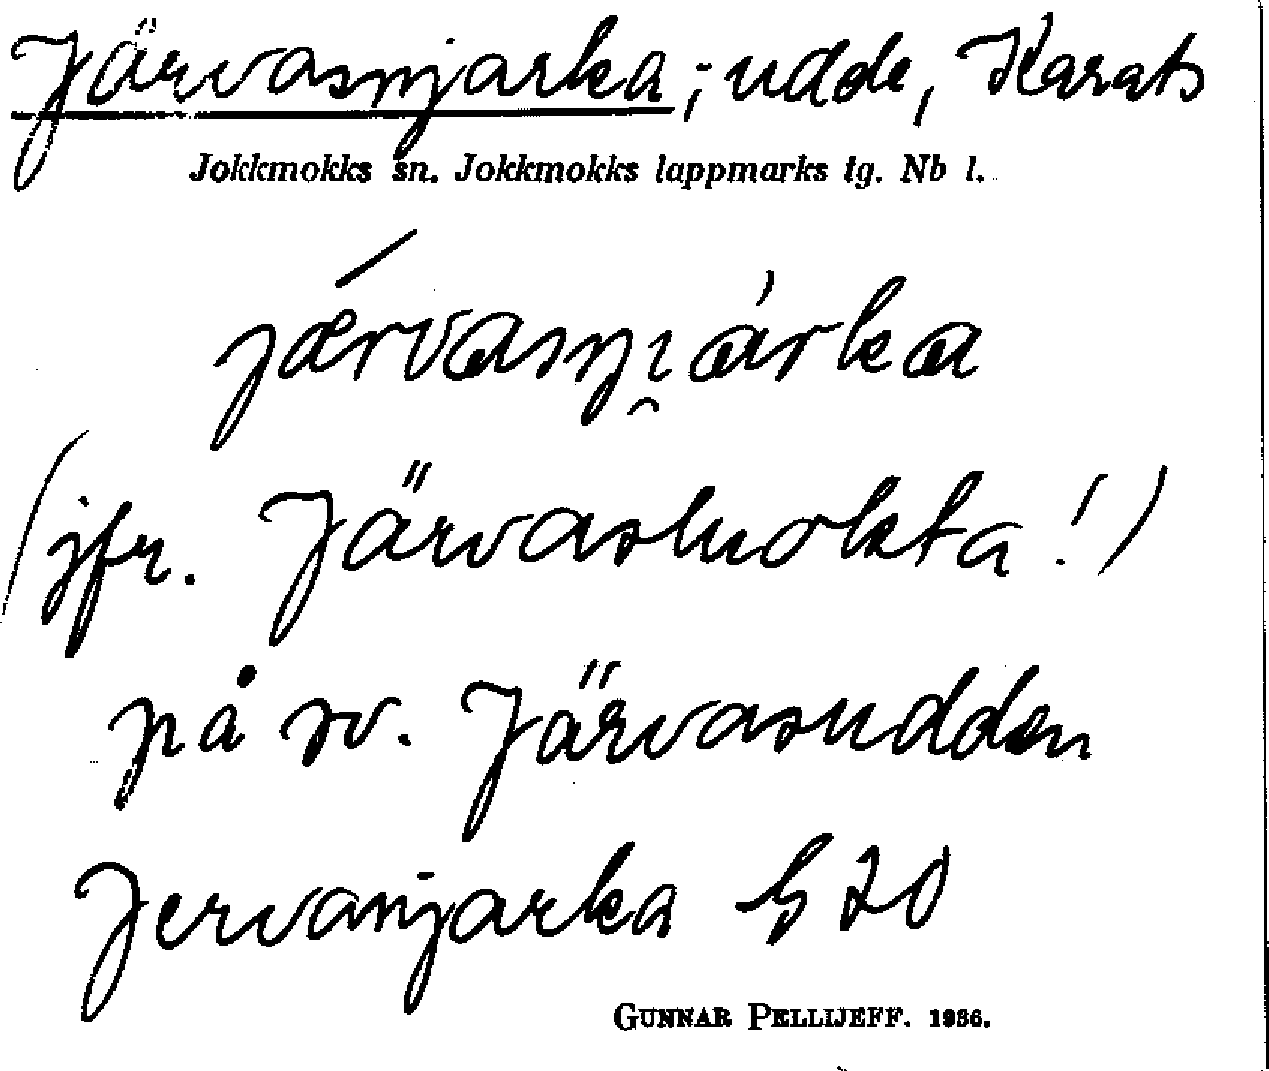 Järvasnjarka; udde, Karats
Jokkmokks sn. Jokkmokks lappmarks tg. Nb l.
járvasnjárka
(jfr. Järvasluokta!)
på sv. Järvasudden
Jervanjarka G 20
GUNNAR PELLIJEFF. 1936.